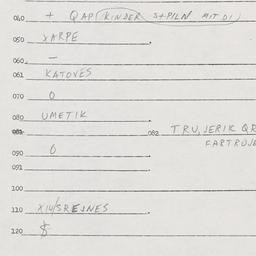 040 + QAP (KINDER S+PILN MIT DI)
050 XARPE
060 —
061 KATOVES
070 0
080 UMETIK
081 082 TRU, JERIK QR
FARTROJE
090 0
091
100
110 XIU/SREJNES
120 $